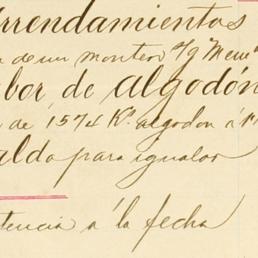 Arrendamientos
de un montero
bor de algodón
de 1574 Ks algodon á
aldo para igualar
tencia á la fecha